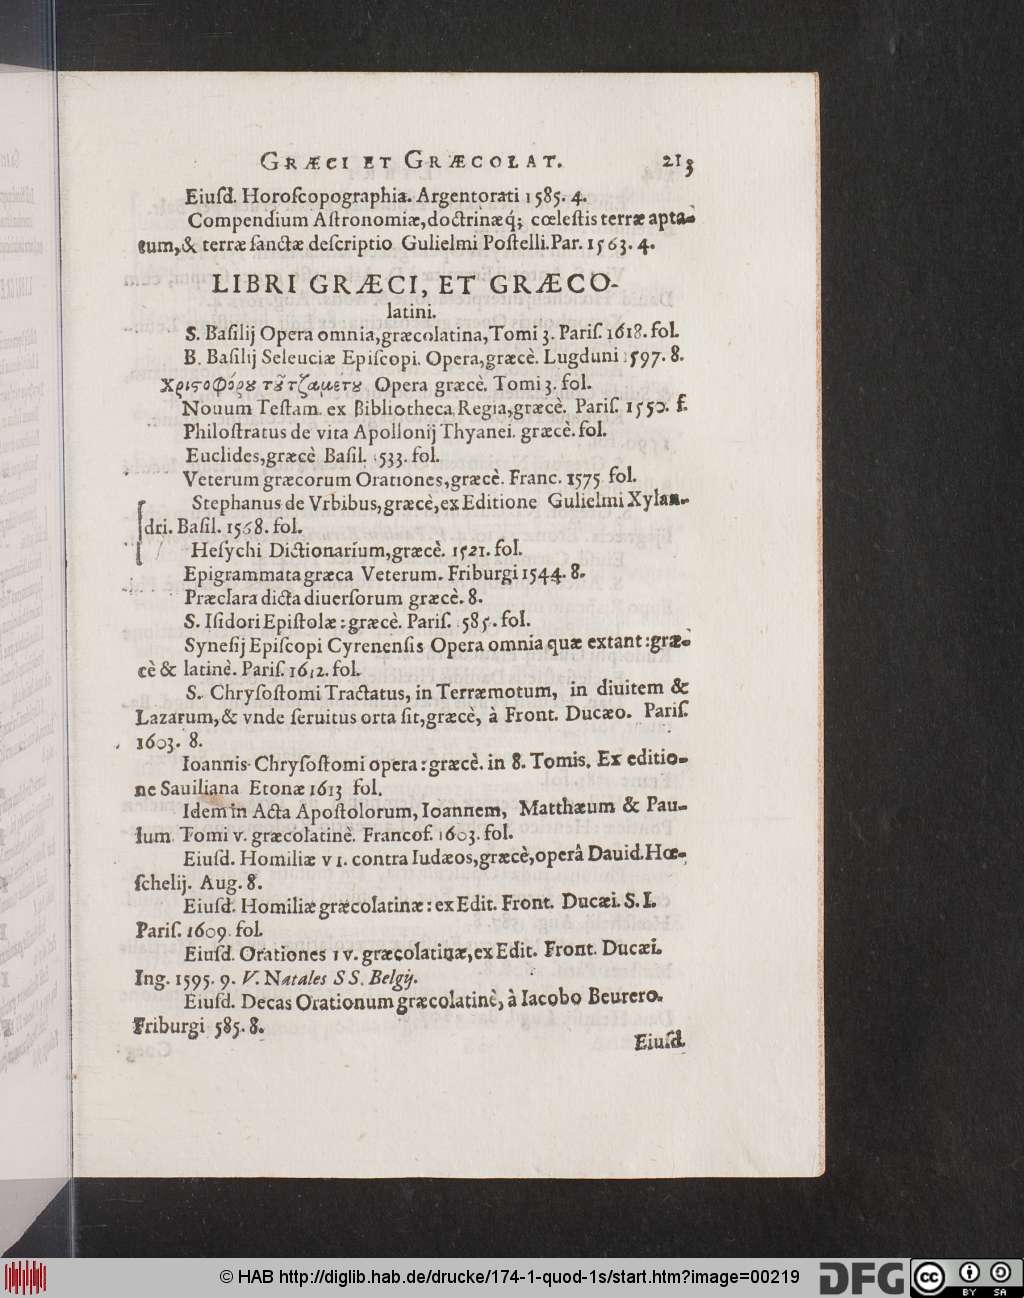 GRÆCI ET GRÆCOLAT. 213
Eiuſd. Horoſcopographia. Argentorati 1585. 4.
Compendium Aſtronomiæ, doctrinæq́; cœleſtis terræ apta-
tum, & terræ ſanctæ deſcriptio Gulielmi Poſtelli. Par. 1563. 4.
LIBRI GRÆCI, ET GRÆCO-
latini.
S. Baſilij Opera omnia, græcolatina, Tomi 3. Pariſ. 1618. fol.
B. Baſilij Seleuciæ Epiſcopi. Opera, græcè. Lugduni 1597. 8.
Χριστοφόρου τοῦ τζαμέτου Opera græcè. Tomi 3. fol.
Nouum Teſtam. ex Bibliotheca Regia, græcè. Pariſ. 1550. f.
Philoſtratus de vita Apollonij Thyanei. græcè. fol.
Euclides, græcè Baſil. 1533. fol.
Veterum græcorum Orationes, græcè. Franc. 1575 fol.
Stephanus de Vrbibus, græcè, ex Editione Gulielmi Xylan-
dri. Baſil. 1568. fol.
Heſychi Dictionarium, græcè. 1521. fol.
Epigrammata græca Veterum. Friburgi 1544. 8.
Præclara dicta diuerſorum græcè. 8.
S. Iſidori Epiſtolæ: græcè. Pariſ. 585. fol.
Syneſij Epiſcopi Cyrenenſis Opera omnia quæ extant: græ-
cè & latinè. Pariſ. 1612. fol.
S. Chryſoſtomi Tractatus, in Terræmotum, in diuitem &
Lazarum, & vnde ſeruitus orta ſit, græcè, à Front. Ducæo. Pariſ.
1603. 8.
Ioannis Chryſoſtomi opera: græcè. in 8. Tomis. Ex editio-
ne Sauiliana Etonæ 1613 fol.
Idem in Acta Apoſtolorum, Ioannem, Matthæum & Pau-
lum. Tomi v. græcolatinè. Francof. 1603. fol.
Eiuſd. Homiliæ VI. contra Iudæos, græcè, operâ Dauid. Hœ-
ſchelij. Aug. 8.
Eiuſd. Homiliæ græcolatinæ: ex Edit. Front. Ducæi. S. I.
Pariſ. 1609. fol.
Eiuſd. Orationes IV. græcolatinæ, ex Edit. Front. Ducæi.
Ing. 1595. 9. V. Natales SS. Belgij.
Eiuſd. Decas Orationum græcolatinè, à Iacobo Beurero.
Friburgi 585. 8.
Eiuſd.
© HAB http://diglib.hab.de/drucke/174-1-quod-1s/start.htm?image=00219
DFG
cc BY SA